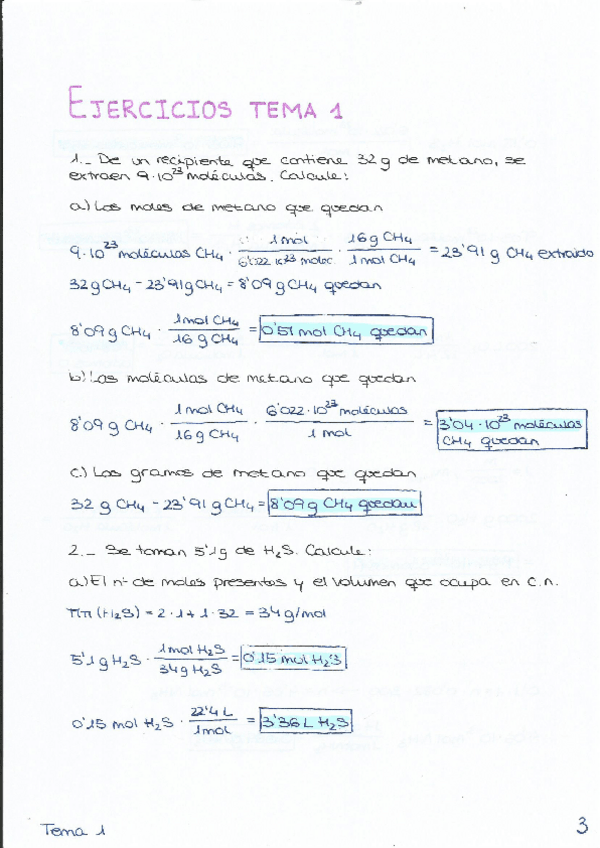 EJERCICIOS TEMA 1
1.- De un recipiente que contiene 32 g de metano, se
extraen 9·10²³ moléculas. Calcule:
a) Los moles de metano que quedan
9·10²³ moléculas CH₄ · 1 mol / 6'022·10²³ molec. · 16 g CH₄ / 1 mol CH₄ = 23'91 g CH₄ extraído
32 g CH₄ - 23'91 g CH₄ = 8'09 g CH₄ quedan
8'09 g CH₄ · 1 mol CH₄ / 16 g CH₄ = 0'51 mol CH₄ quedan
b) Las moléculas de metano que quedan
8'09 g CH₄ · 1 mol CH₄ / 16 g CH₄ · 6'022·10²³ moléculas / 1 mol = 3'04·10²³ moléculas
CH₄ quedan
c) Los gramos de metano que quedan
32 g CH₄ - 23'91 g CH₄ = 8'09 g CH₄ quedan
2.- Se toman 5'1 g de H₂S. Calcule:
a) El nº de moles presentes y el volumen que ocupa en c.n.
Mm (H₂S) = 2·1 + 1·32 = 34 g/mol
5'1 g H₂S · 1 mol H₂S / 34 g H₂S = 0'15 mol H₂S
0'15 mol H₂S · 22'4 L / 1 mol = 3'36 L H₂S
Tema 1
3